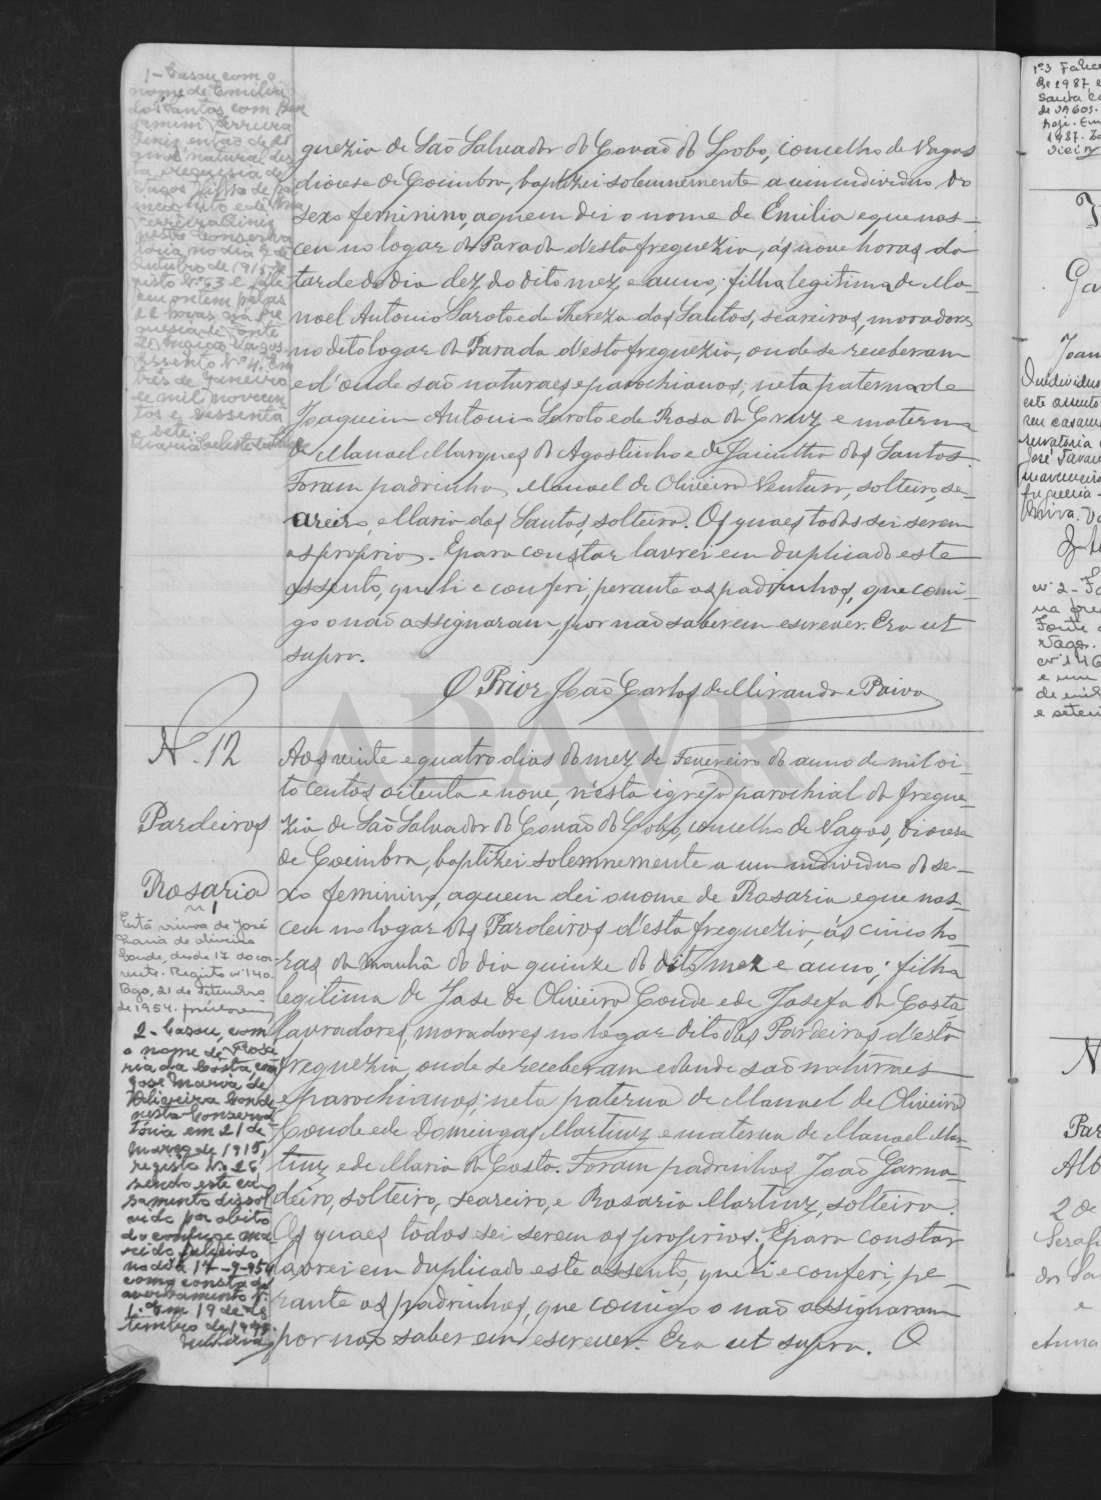 1- Casou com o
nome de Emilia
dos Santos com Ben
jamim Ferreira
natural des
ta freguesia de
Vagos
nesta Conserva
tória, no dia 2 de
Outubro de 1915
registo Nº 63 e
em ontem pelas
22 horas na fre
guesia de Fonte
de Angeão, Vagos.
Assento Nº 4. Em
três de Janeiro
de mil novecen
tos e sessenta
e sete.
guezia de São Salvador do Covão do Lobo, concelho de Vagos
diocese de Coimbra, baptizei solemnemente a um individuo, do
sexo feminino, a quem dei o nome de Emilia e que nas-
ceu no logar da Parada d'esta freguezia, ás nove horas da
tarde do dia dez do dito mez e anno; filha legitima de Ma-
noel Antonio Saroto e de Thereza dos Santos, seareiros, moradores
no dito logar da Parada d'esta freguezia, onde se receberam
e d'onde são naturaes e parochianos; neta paterna de
Joaquim Antonio Saroto e de Rosa da Cruz e materna
de Manoel Marques do Agostinho e de Jacintha dos Santos.
Foram padrinhos Manoel de Oliveira Ventura, solteiro, se-
areiro, e Maria dos Santos, solteira. Os quaes todos sei serem
os proprios. E para constar lavrei em duplicado este
assento, que li e conferi, perante os padrinhos, que comi-
go o não assignaram, por não saberem escrever. Era ut
supra.
O Prior João Carlos de Miranda e Paiva
ADAVR
N. 12
Pardeiros
Rosaria
Nº 1
Está viuva de José
Maria de Oliveira
Conde, desde 17 do cor-
rente. Registo nº 140.
Vagos, 21 de Setembro
de 1954.
2- Casou, com
o nome de Rosa
ria da Costa, com
José Maria de
Oliveira Conde
nesta Conserva
tória em 21 de
Março de 1915,
registo Nº 26
sendo este ca
samento dissol
vido por óbito
do conjuge ma
rido falecido
no dia 17-9-954
como consta do
averbamento Nº
1. Em 19 de Se
tembro de
Aos vinte e quatro dias do mez de Fevereiro do anno de mil oi-
tocentos oitenta e nove, n'esta igreja parochial da fregue-
zia de São Salvador do Covão do Lobo, concelho de Vagos, diocese
de Coimbra, baptizei solemnemente a um individuo do se-
xo feminino, a quem dei o nome de Rosaria e que nas-
ceu no logar dos Pardeiros d'esta freguezia, ás cinco ho-
ras da manhã do dia quinze do dito mez e anno; filha
legitima de José de Oliveira Conde e de Josefa da Costa
lavradores, moradores no logar dito dos Pardeiros d'esta
freguezia, onde se receberam e donde são naturaes
e parochianos; neta paterna de Manoel de Oliveira
Conde e de Domingas Martins e materna de Manoel Mar-
tins e de Maria da Costa. Foram padrinhos João Garna-
deiro, solteiro, seareiro, e Rosaria Martins, solteira.
Os quaes todos sei serem os proprios. E para constar
lavrei em duplicado este assento, que li e conferi, pe-
rante os padrinhos, que comigo o não assignaram
por não saberem escrever. Era ut supra. O